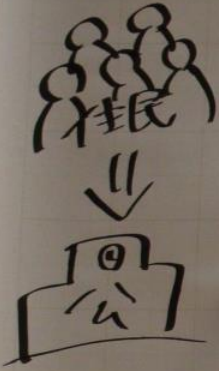 住民
公